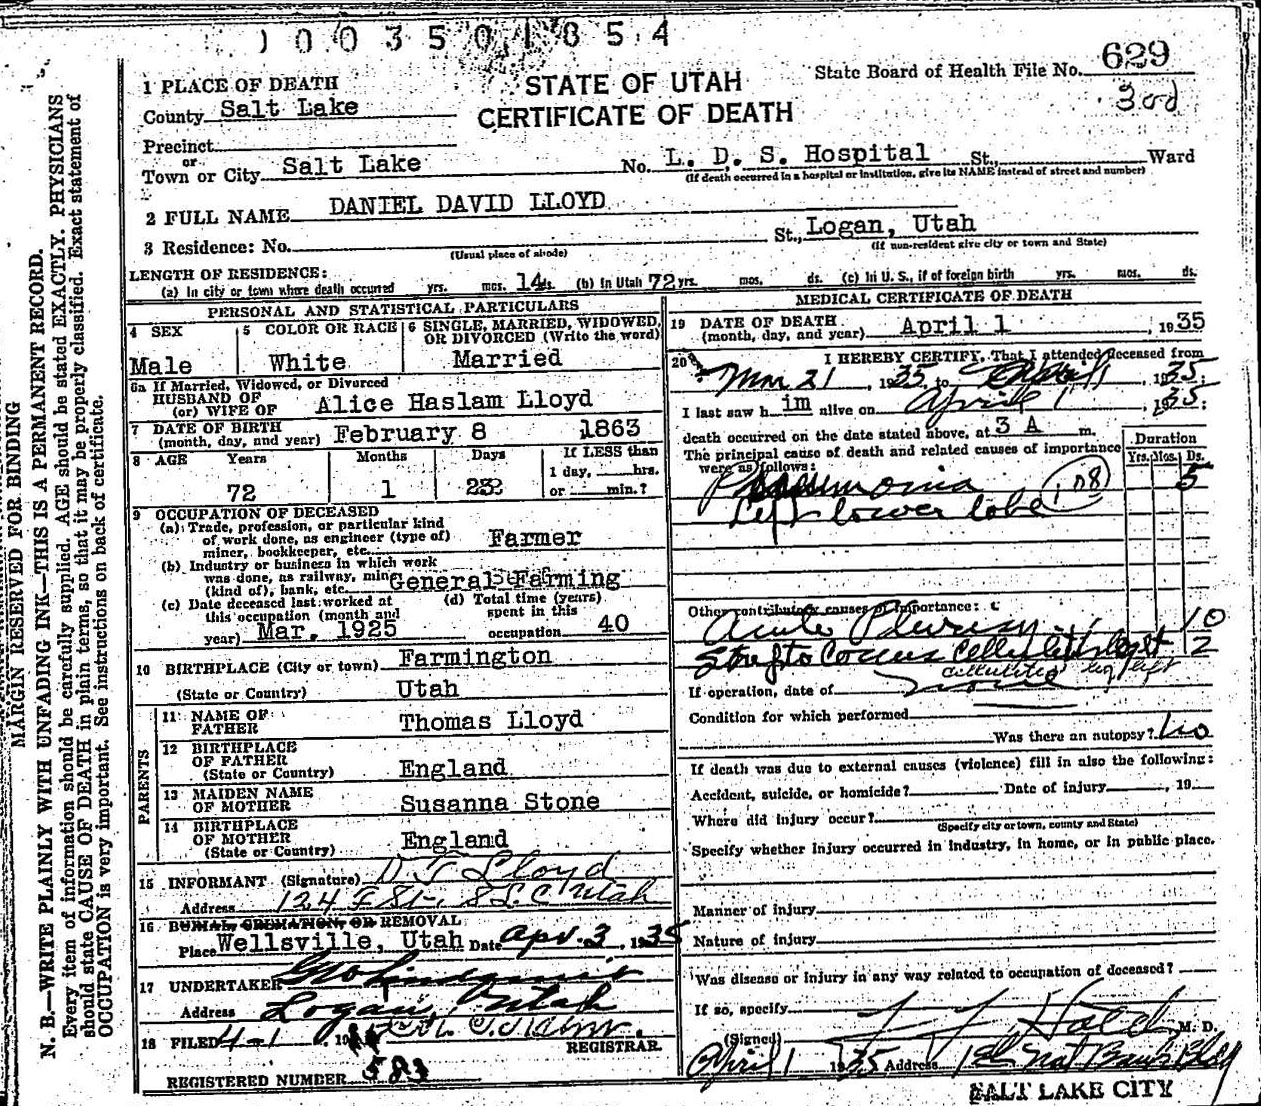 1003501854
STATE OF UTAH
CERTIFICATE OF DEATH
State Board of Health File No. 629
1 PLACE OF DEATH
County Salt Lake
Precinct
or
Town or City Salt Lake No. L. D. S. Hospital St., Ward
(If death occurred in a hospital or institution, give its NAME instead of street and number)
2 FULL NAME DANIEL DAVID LLOYD
3 Residence: No. St., Logan, Utah
(Usual place of abode) (If non-resident give city or town and State)
LENGTH OF RESIDENCE:
(a) In city or town where death occurred yrs. mos. 14 ds. (b) In Utah 72 yrs. mos. ds. (c) In U. S., if of foreign birth yrs. mos. ds.
PERSONAL AND STATISTICAL PARTICULARS
4 SEX
Male
5 COLOR OR RACE
White
6 SINGLE, MARRIED, WIDOWED, OR DIVORCED (Write the word)
Married
6a If Married, Widowed, or Divorced
HUSBAND OF
(or) WIFE OF Alice Haslam Lloyd
7 DATE OF BIRTH
(month, day, and year) February 8 1863
8 AGE Years Months Days If LESS than
1 day, hrs.
72 1 or min.?
9 OCCUPATION OF DECEASED
(a) Trade, profession, or particular kind
of work done, as engineer (type of)
miner, bookkeeper, etc. Farmer
(b) Industry or business in which work
was done, as railway, mine
(kind of), bank, etc. General Farming
(c) Date deceased last worked at
this occupation (month and
year) Mar. 1925
(d) Total time (years)
spent in this
occupation 40
10 BIRTHPLACE (City or town) Farmington
(State or Country) Utah
PARENTS
11 NAME OF
FATHER Thomas Lloyd
12 BIRTHPLACE
OF FATHER
(State or Country) England
13 MAIDEN NAME
OF MOTHER Susanna Stone
14 BIRTHPLACE
OF MOTHER
(State or Country) England
15 INFORMANT (Signature) D T Lloyd
Address 124 F St., S L C Utah
16 BURIAL, CREMATION, OR REMOVAL
Place Wellsville, Utah Date Apr. 3, 1935
17 UNDERTAKER Geo Lindquist
Address Logan, Utah
18 FILED 4-1 19
REGISTRAR.
REGISTERED NUMBER 583
MEDICAL CERTIFICATE OF DEATH
19 DATE OF DEATH
(month, day, and year) April 1, 1935
20 I HEREBY CERTIFY, That I attended deceased from
Mar 21, 1935 to April 1, 1935:
I last saw h im alive on April 1, 1935:
death occurred on the date stated above, at 3 A m.
The principal cause of death and related causes of importance
were as follows:
Duration
Yrs. Mos. Ds.
Pneumonia 108 5
Left lower lobe
Other contributory causes of importance:
Acute Pleurisy 10
Streptococcus Cellulitis leg left 2
cellulitis leg left
If operation, date of none
Condition for which performed
Was there an autopsy? No
If death was due to external causes (violence) fill in also the following:
Accident, suicide, or homicide? Date of injury, 19
Where did injury occur?
(Specify city or town, county and State)
Specify whether injury occurred in industry, in home, or in public place.
Manner of injury
Nature of injury
Was disease or injury in any way related to occupation of deceased?
If so, specify
(Signed) M. D.
April 1 1935 Address 1st Nat Bank Bldg
SALT LAKE CITY
MARGIN RESERVED FOR BINDING
N. B.—WRITE PLAINLY WITH UNFADING INK—THIS IS A PERMANENT RECORD.
Every item of information should be carefully supplied. AGE should be stated EXACTLY. PHYSICIANS
should state CAUSE OF DEATH in plain terms, so that it may be properly classified. Exact statement of
OCCUPATION is very important. See instructions on back of certificate.